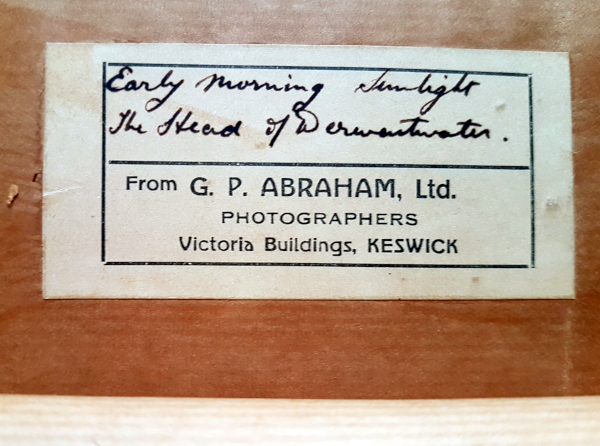 Early Morning Sunlight
The Head of Derwentwater.
From G. P. ABRAHAM, Ltd.
PHOTOGRAPHERS
Victoria Buildings, KESWICK